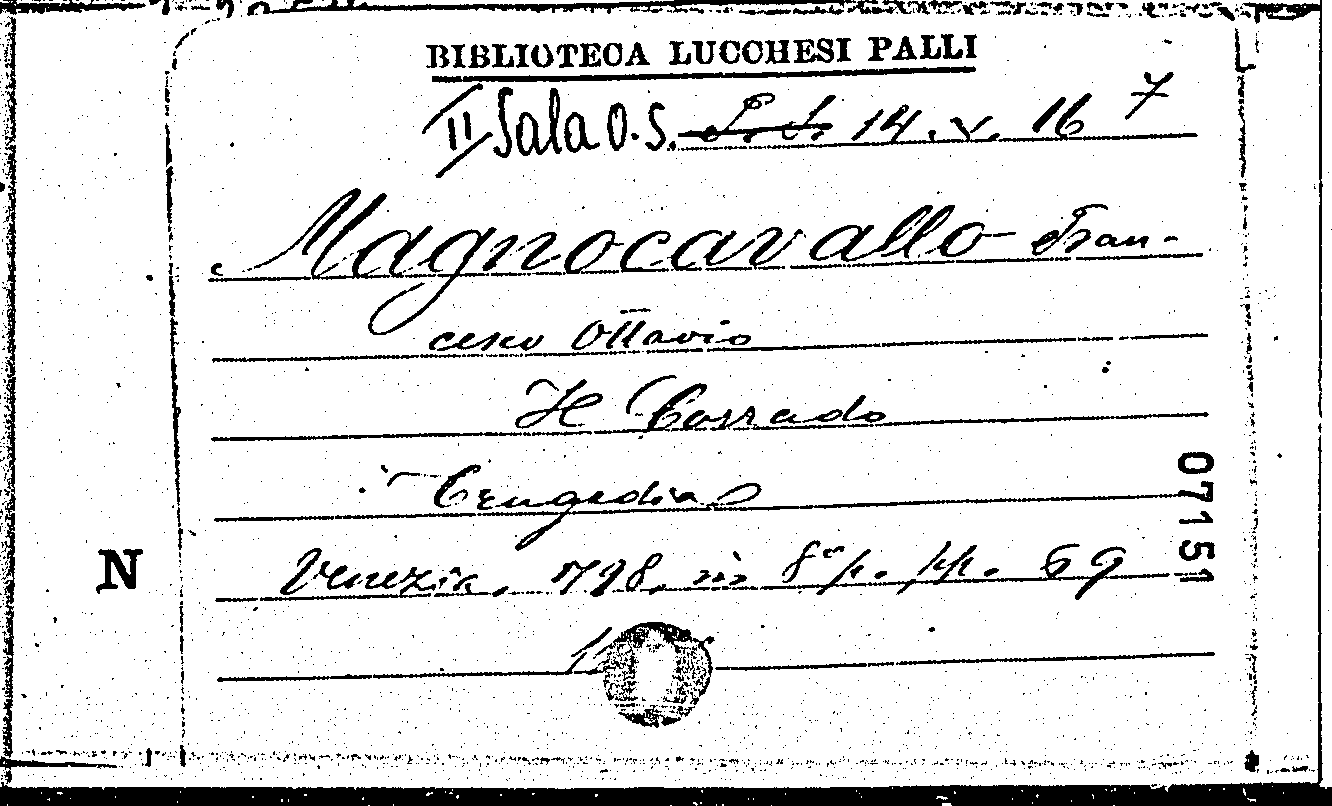 BIBLIOTECA LUCCHESI PALLI
II Sala O.S. 14. V. 16 7
Magnocavallo Fran-
cesco Ottavio
Il Corrado
Tragedia
Venezia, 798, in 8° p. pp. 69
N
07151